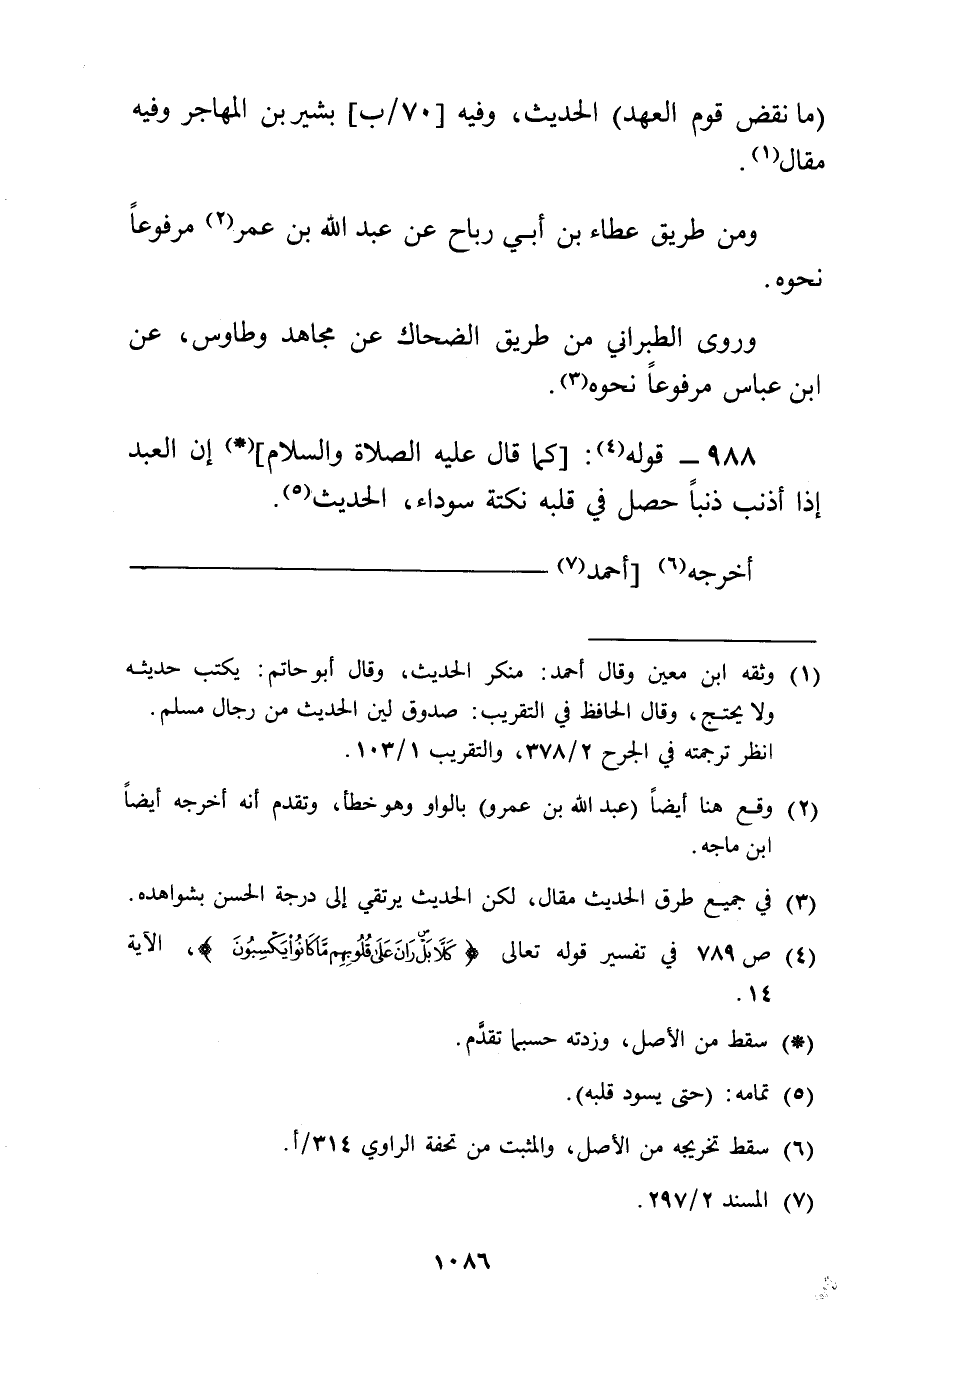 (ما نقض قوم العهد) الحديث، وفيه [٧٠/ب] بشير بن المهاجر وفيه
مقال(١).
ومن طريق عطاء بن أبي رباح عن عبد الله بن عمر(٢) مرفوعاً
نحوه.
وروى الطبراني من طريق الضحاك عن مجاهد وطاوس، عن
ابن عباس مرفوعاً نحوه(٣).
٩٨٨ ــ قوله(٤): [كما قال عليه الصلاة والسلام](*) إن العبد
إذا أذنب ذنباً حصل في قلبه نكتة سوداء، الحديث(٥).
أخرجه(٦) [أحمد(٧)
(١) وثقه ابن معين وقال أحمد: منكر الحديث، وقال أبو حاتم: يكتب حديثه
ولا يحتج، وقال الحافظ في التقريب: صدوق لين الحديث من رجال مسلم.
انظر ترجمته في الجرح ٣٧٨/٢، والتقريب ١٠٣/١.
(٢) وقع هنا أيضاً (عبد الله بن عمرو) بالواو وهو خطأ، وتقدم أنه أخرجه أيضاً
ابن ماجه.
(٣) في جميع طرق الحديث مقال، لكن الحديث يرتقي إلى درجة الحسن بشواهده.
(٤) ص ٧٨٩ في تفسير قوله تعالى ﴿ كَلَّا بَلْ رَانَ عَلَىٰ قُلُوبِهِم مَّا كَانُوا يَكْسِبُونَ ﴾، الآية
١٤.
(*) سقط من الأصل، وزدته حسبما تقدَّم.
(٥) تمامه: (حتى يسود قلبه).
(٦) سقط تخريجه من الأصل، والمثبت من تحفة الراوي ٣١٤/أ.
(٧) المسند ٢٩٧/٢.
١٠٨٦